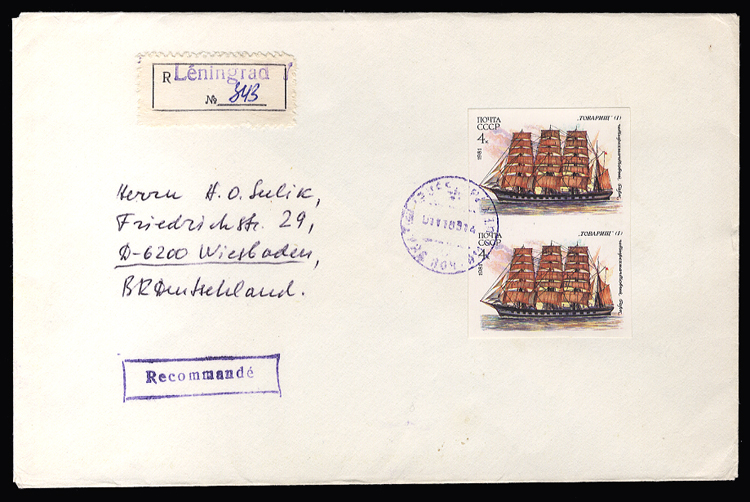 R Léningrad
№ 343
ПОЧТА
СССР
4к
1981
„ТОВАРИЩ" (I)
четырехмачтовый барк
ПОЧТА
СССР
4к
1981
„ТОВАРИЩ" (I)
четырехмачтовый барк
Herrn H. O. Sulik,
Friedrichstr. 29,
D-6200 Wiesbaden,
BRDeutschland.
Recommandé